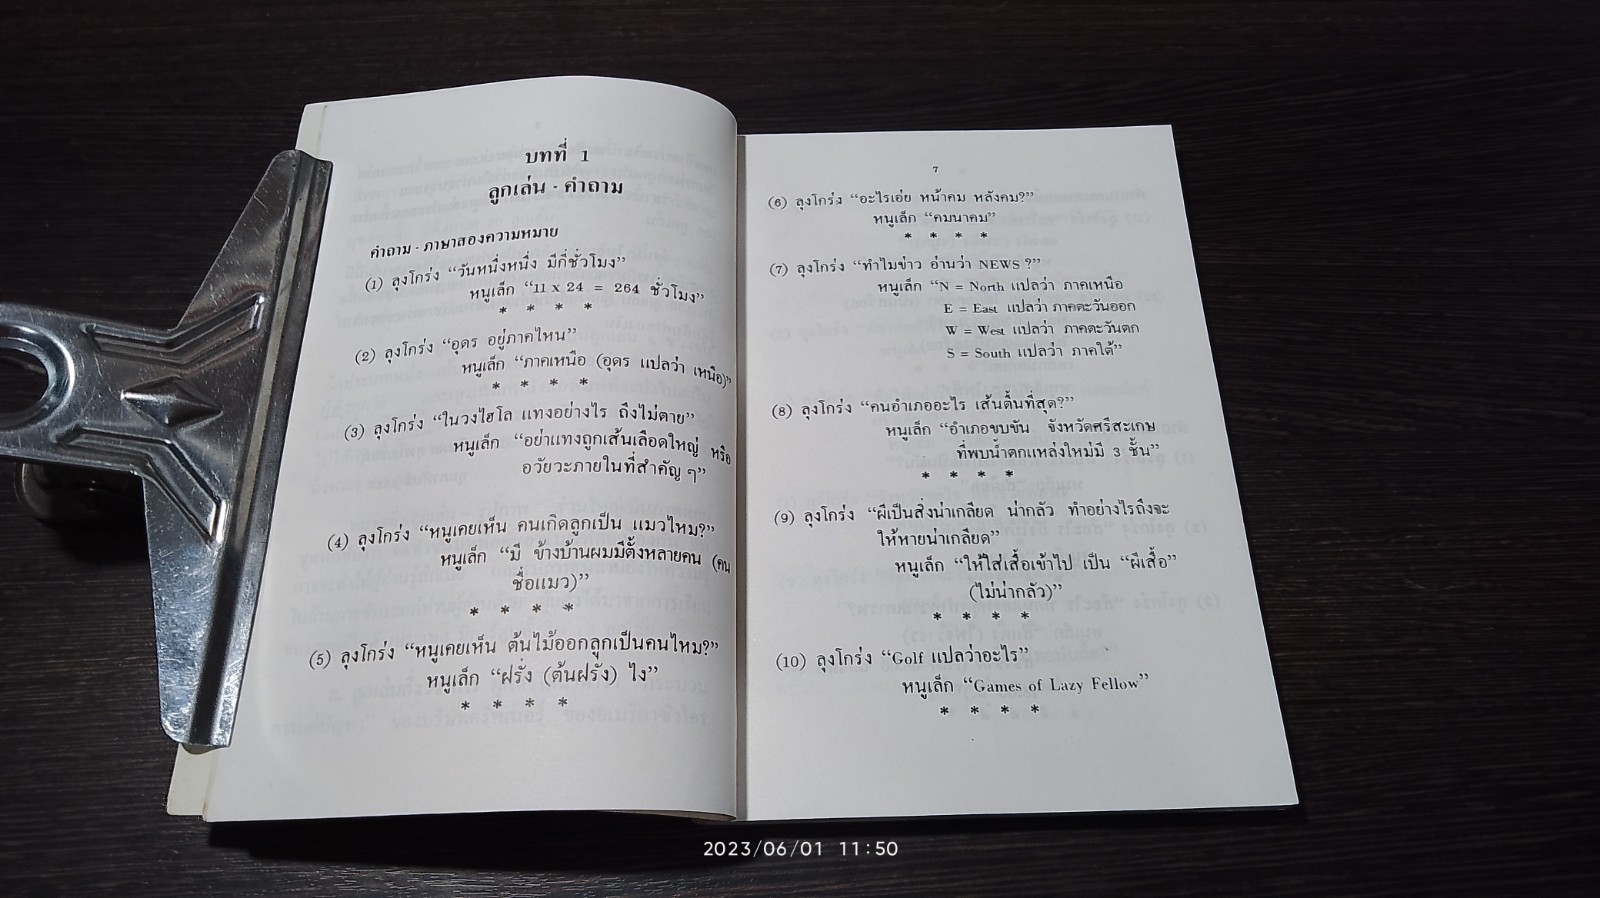 บทที่ 1
ลูกเล่น - คำถาม
คำถาม - ภาษาสองความหมาย
(1) ลุงโกร่ง “วันหนึ่งหนึ่ง มีกี่ชั่วโมง”
หนูเล็ก “11 x 24 = 264 ชั่วโมง”
* * * *
(2) ลุงโกร่ง “อุดร อยู่ภาคไหน”
หนูเล็ก “ภาคเหนือ (อุดร แปลว่า เหนือ)”
* * * *
(3) ลุงโกร่ง “ในวงไฮโล แทงอย่างไร ถึงไม่ตาย”
หนูเล็ก “อย่าแทงถูกเส้นเลือดใหญ่ หรือ
อวัยวะภายในที่สำคัญ ๆ”
(4) ลุงโกร่ง “หนูเคยเห็น คนเกิดลูกเป็น แมวไหม?”
หนูเล็ก “มี ข้างบ้านผมมีตั้งหลายคน (คน
ชื่อแมว)”
* * * *
(5) ลุงโกร่ง “หนูเคยเห็น ต้นไม้ออกลูกเป็นคนไหม?”
หนูเล็ก “ฝรั่ง (ต้นฝรั่ง) ไง”
* * * *
7
(6) ลุงโกร่ง “อะไรเอ่ย หน้าคม หลังคม?”
หนูเล็ก “คมนาคม”
* * * *
(7) ลุงโกร่ง “ทำไมข่าว อ่านว่า NEWS ?”
หนูเล็ก “N = North แปลว่า ภาคเหนือ
E = East แปลว่า ภาคตะวันออก
W = West แปลว่า ภาคตะวันตก
S = South แปลว่า ภาคใต้”
(8) ลุงโกร่ง “คนอำเภออะไร เส้นตื้นที่สุด?”
หนูเล็ก “อำเภอขบขัน จังหวัดศรีสะเกษ
ที่พบน้ำตกแหล่งใหม่มี 3 ชั้น”
* * * *
(9) ลุงโกร่ง “ผีเป็นสิ่งน่าเกลียด น่ากลัว ทำอย่างไรถึงจะ
ให้หายน่าเกลียด”
หนูเล็ก “ให้ใส่เสื้อเข้าไป เป็น “ผีเสื้อ”
(ไม่น่ากลัว)”
* * * *
(10) ลุงโกร่ง “Golf แปลว่าอะไร”
หนูเล็ก “Games of Lazy Fellow”
* * * *
2023/06/01 11:50